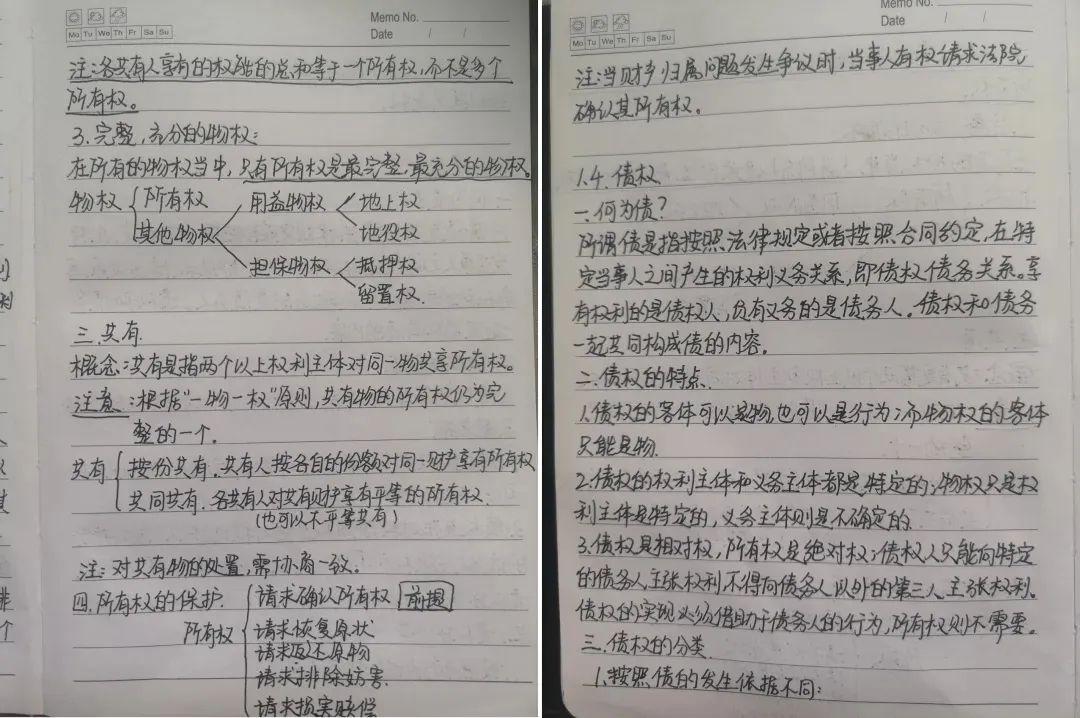 Memo No.
Mo Tu We Th Fr Sa Su
Date / /
注:各共有人享有的权能的总和等于一个所有权,而不是多个
所有权。
3.完整,充分的物权:
在所有的物权当中,只有所有权是最完整.最充分的物权。
物权 所有权 用益物权 地上权
其他物权 地役权
担保物权 抵押权
留置权.
三.共有.
概念:共有是指两个以上权利主体对同一物共享所有权。
注意:根据“一物一权”原则,共有物的所有权仍为完
整的一个。
共有 按份共有.共有人按各自的份额对同一财产享有所有权
共同共有.各共有人对共有财产享有平等的所有权.
(也可以不平等共有)
注:对共有物的处置,需协商一致。
四.所有权的保护. 请求确认所有权 前提
所有权 请求恢复原状
请求返还原物
请求排除妨害.
请求损害赔偿
Memo No.
Mo Tu We Th Fr Sa Su
Date / /
注:当财产归属问题发生争议时,当事人有权请求法院
确认其所有权。
1.4.债权
一.何为债?
所谓债是指按照法律规定或者按照合同约定,在特
定当事人之间产生的权利义务关系,即债权债务关系。享
有权利的是债权人,负有义务的是债务人。债权和债务
一起共同构成债的内容。
二.债权的特点.
1.债权的客体可以是物,也可以是行为;而物权的客体
只能是物.
2.债权的权利主体和义务主体都是特定的;物权只是权
利主体是特定的,义务主体则是不确定的.
3.债权是相对权,所有权是绝对权;债权人只能向特定
的债务人主张权利不得向债务人以外的第三人主张权利.
债权的实现必须借助于债务人的行为,所有权则不需要。
三.债权的分类
1.按照债的发生依据不同: